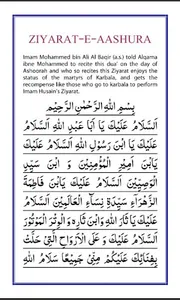 ZIYARAT-E-AASHURA
Imam Mohammed bin Ali Al Baqir (a.s.) told Alqama
ibne Mohammed to recite this dua' on the day of
Ashoorah and who so recites this Ziyarat enjoys the
status of the martyrs of Karbala, and gets the
recompense like those who go to karbala to perform
Imam Husain's Ziyarat.
بِسْمِ اللهِ الرَّحْمٰنِ الرَّحِيْمِ
اَلسَّلَامُ عَلَيْكَ يَا اَبَا عَبْدِ اللهِ اَلسَّلَامُ
عَلَيْكَ يَابْنَ رَسُوْلِ اللهِ اَلسَّلَامُ عَلَيْكَ
يَابْنَ اَمِيْرِ الْمُؤْمِنِيْنَ وَ ابْنَ سَيِّدِ
الْوَصِيِّيْنَ اَلسَّلَامُ عَلَيْكَ يَابْنَ فَاطِمَةَ
الزَّهْرَاءِ سَيِّدَةِ نِسَاءِ الْعَالَمِيْنَ اَلسَّلَامُ
عَلَيْكَ يَا ثَارَ اللهِ وَابْنَ ثَارِهٖ وَ الْوِتْرَ الْمَوْتُوْرَ
اَلسَّلَامُ عَلَيْكَ وَ عَلَى الْاَرْوَاحِ الَّتِيْ حَلَّتْ
بِفِنَائِكَ عَلَيْكُمْ مِنِّيْ جَمِيْعًا سَلَامُ اللهِ